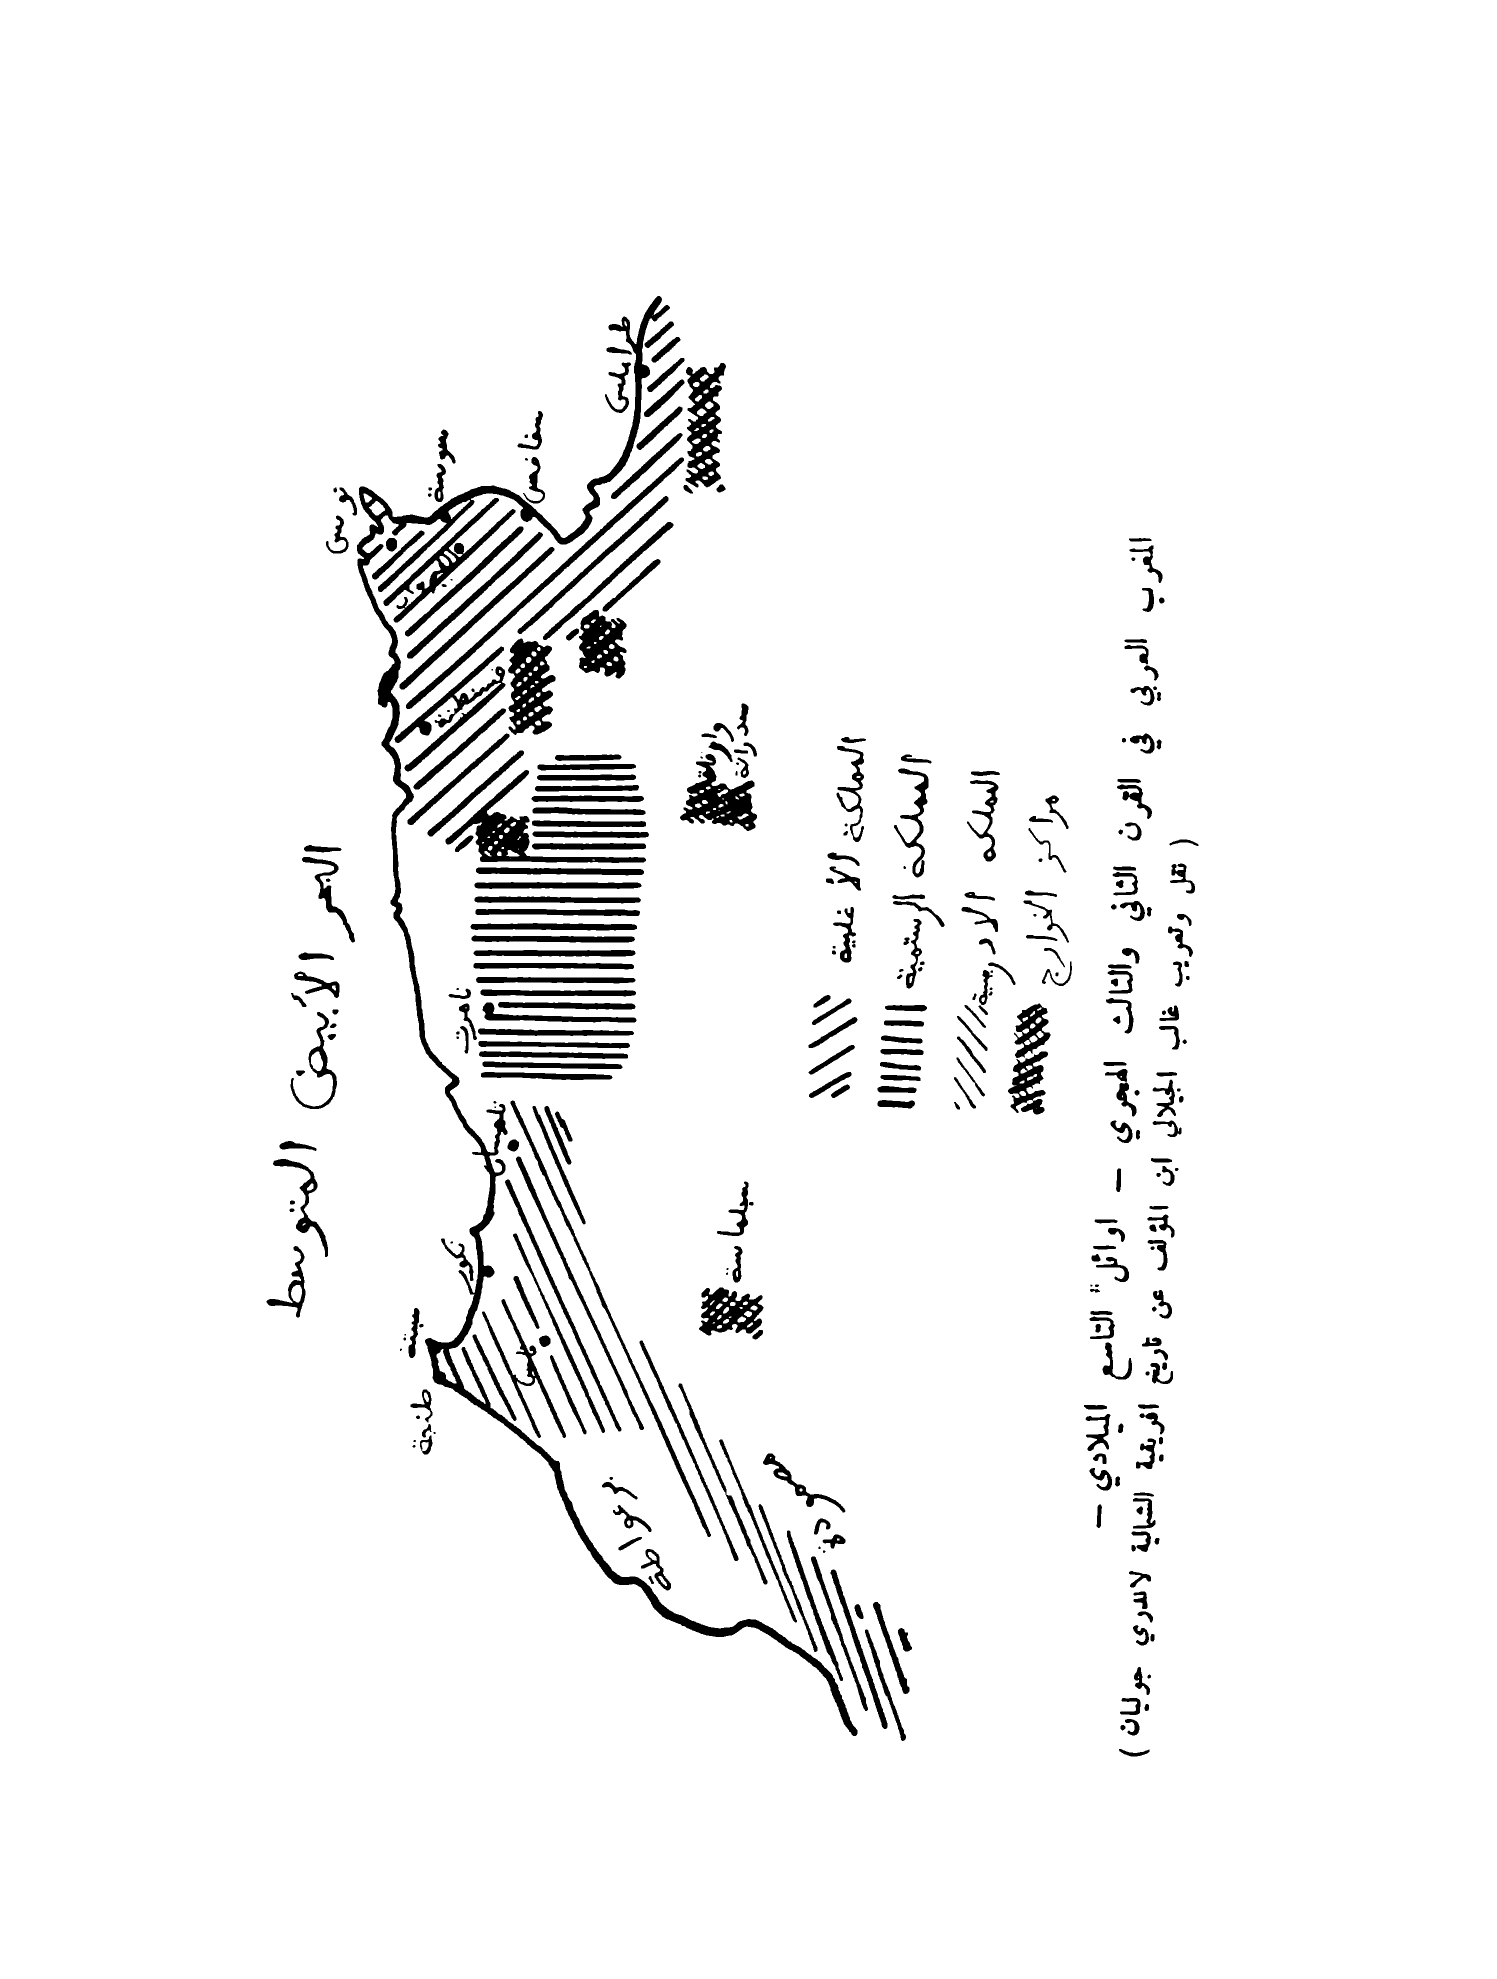 البحر الأبيض المتوسط
طرابلس
صفاقس
سوسة
تونس
القيروان
قسنطينة
وارقلة
سدراتة
تاهرت
تلمسان
نكور
سبتة
طنجة
فاس
سجلماسة
المملكة الأغلبية
المملكة الرستمية
المملكة الادريسية
مراكز الخوارج
المغرب العربي في القرن الثاني والثالث الهجري – اوائل التاسع الميلادي –
( نقل وتعريب غالب الجيلالي ابن المؤلف عن تاريخ افريقية الشمالية لاندري جوليان )